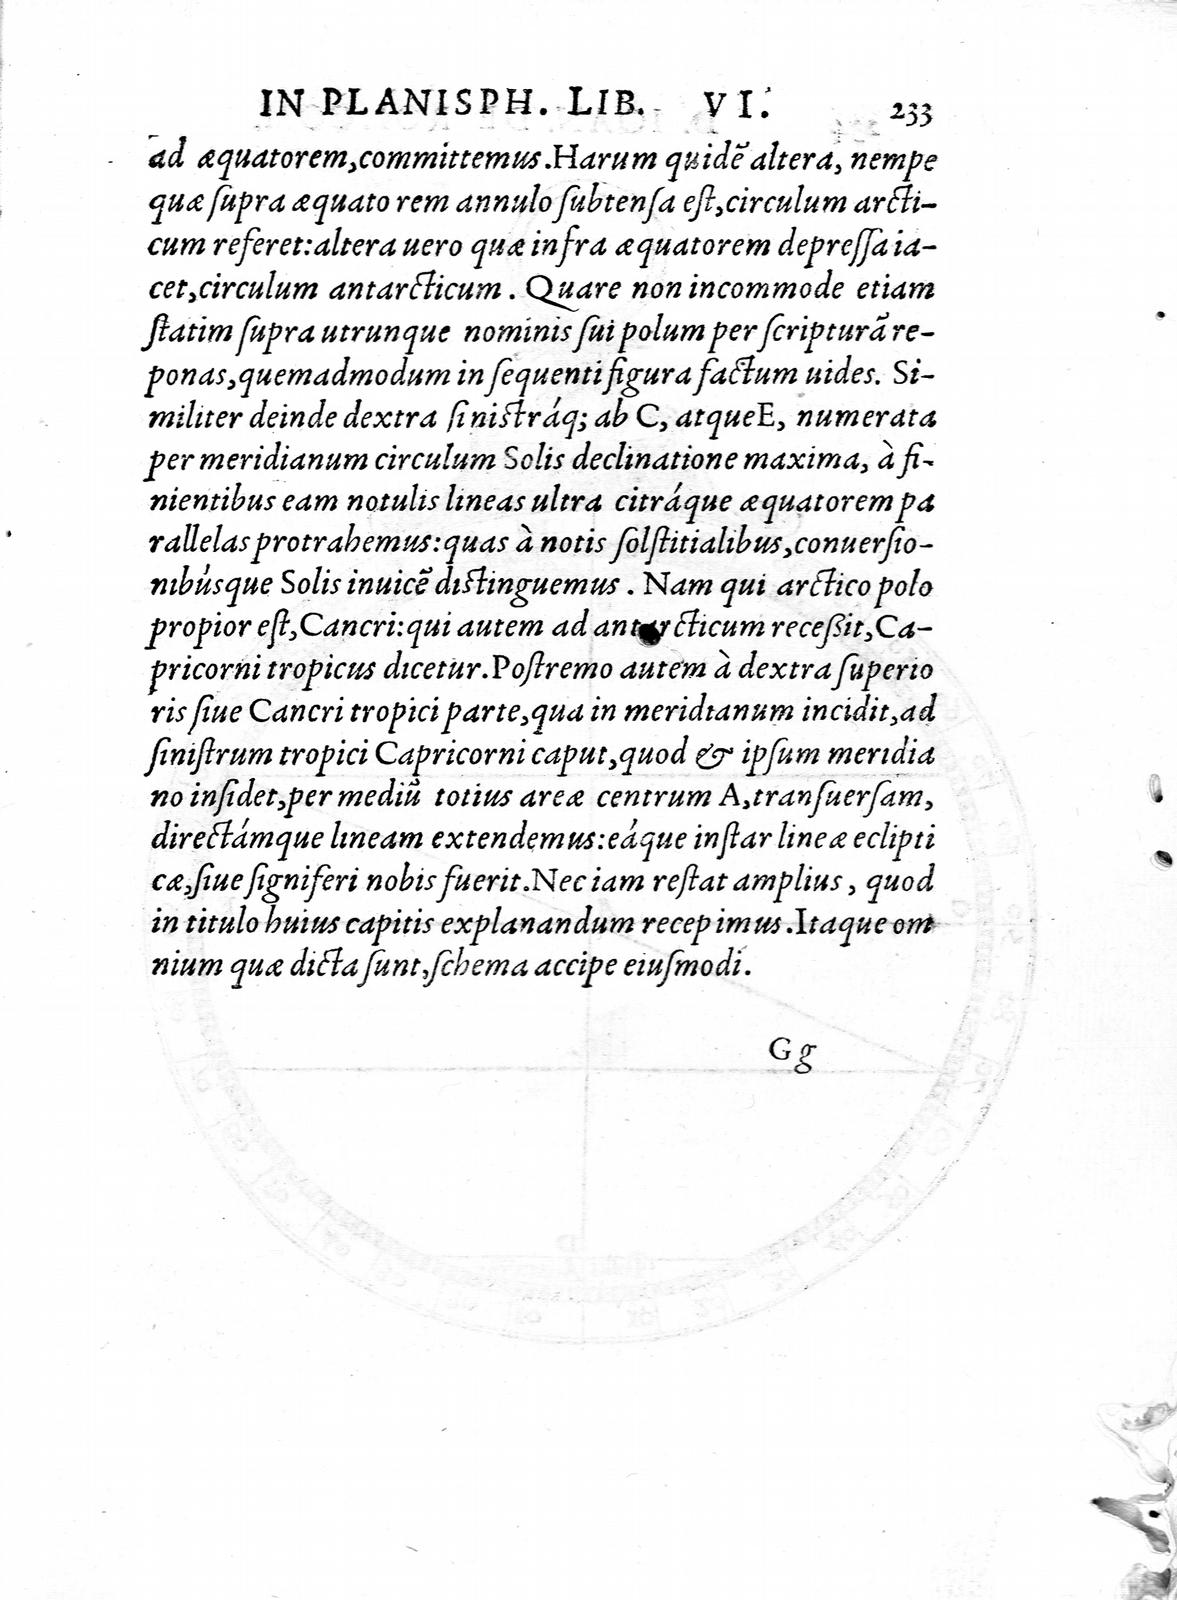 IN PLANISPH. LIB. VI. 233
ad æquatorem,committemus.Harum quidẽ altera, nempe
quæ ſupra æquato rem annulo ſubtenſa eſt,circulum arcti-
cum referet:altera uero quæ infra æquatorem depreſſa ia-
cet,circulum antarcticum. Quare non incommode etiam
ſtatim ſupra utrunque nominis ſui polum per ſcripturã re-
ponas,quemadmodum in ſequenti figura factum uides. Si-
militer deinde dextra ſiniſtráq; ab C, atque E, numerata
per meridianum circulum Solis declinatione maxima, à fi-
nientibus eam notulis lineas ultra citráque æquatorem pa
rallelas protrahemus:quas à notis ſolſtitialibus,conuerſio-
nibúsque Solis inuicẽ diſtinguemus. Nam qui arctico polo
propior eſt,Cancri:qui autem ad antarcticum receßit,Ca-
pricorni tropicus dicetur.Poſtremo autem à dextra ſuperio
ris ſiue Cancri tropici parte,qua in meridianum incidit,ad
ſiniſtrum tropici Capricorni caput,quod & ipſum meridia
no inſidet,per mediũ totius areæ centrum A,tranſuerſam,
directámque lineam extendemus:eáque inſtar lineæ eclipti
cæ,ſiue ſigniferi nobis fuerit.Nec iam reſtat amplius, quod
in titulo huius capitis explanandum recepimus.Itaque om
nium quæ dicta ſunt,ſchema accipe eiuſmodi.
Gg